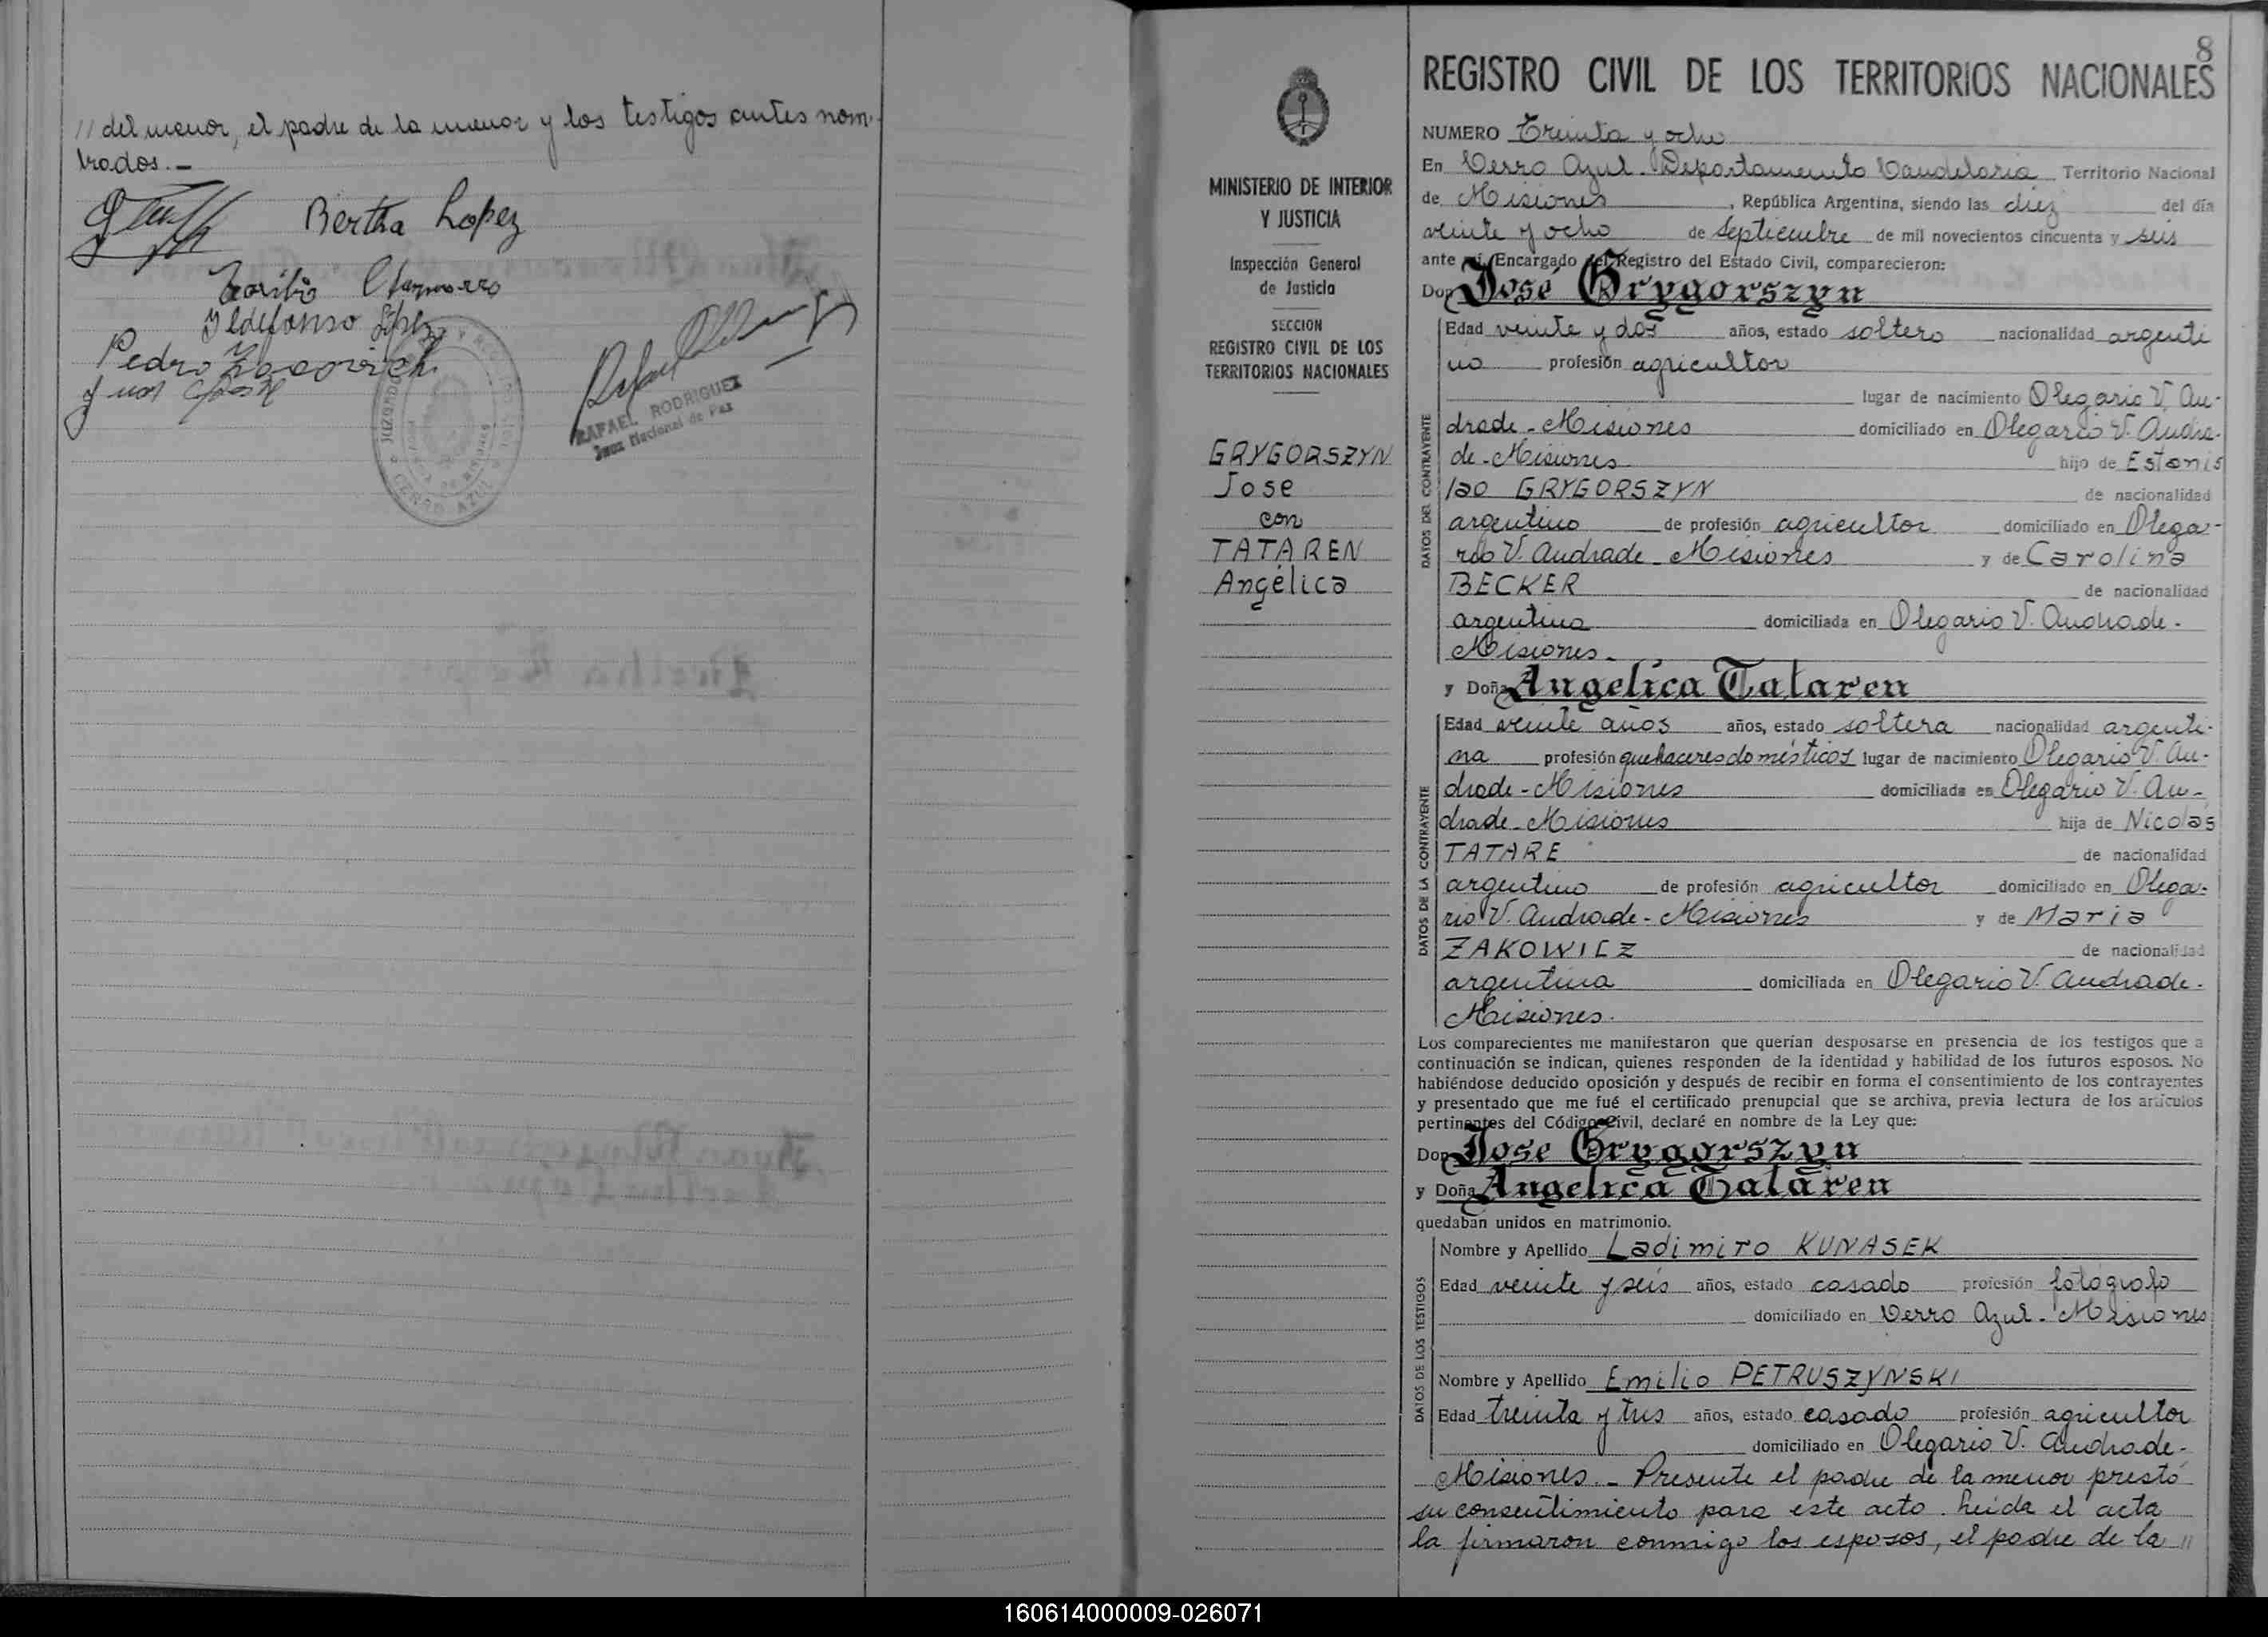 // del menor, el padre de la menor y los testigos antes nom-
brados.-
Bertha Lopez
Toribio Chamorro
Ildefonso López
Pedro
RAFAEL RODRIGUEZ
Juez Nacional de Paz
CERRO AZUL
8
REGISTRO CIVIL DE LOS TERRITORIOS NACIONALES
MINISTERIO DE INTERIOR
Y JUSTICIA
Inspección General
de Justicia
SECCION
REGISTRO CIVIL DE LOS
TERRITORIOS NACIONALES
GRYGORSZYN
Jose
con
TATAREN
Angélica
NUMERO Treinta y ocho
En Cerro Azul. Departamento Candelaria Territorio Nacional
de Misiones, República Argentina, siendo las diez del día
veinte y ocho de Septiembre de mil novecientos cincuenta y seis
ante mí, Encargado del Registro del Estado Civil, comparecieron:
Don José Grygorszyn
DATOS DEL CONTRAYENTE
Edad veinte y dos años, estado soltero nacionalidad argenti
no profesión agricultor
lugar de nacimiento Olegario V. An-
drade - Misiones domiciliado en Olegario V. Andra-
de - Misiones hijo de Estanis
lao GRYGORSZYN de nacionalidad
argentino de profesión agricultor domiciliado en Olega-
rio V. Andrade - Misiones y de Carolina
BECKER de nacionalidad
argentina domiciliada en Olegario V. Andrade -
Misiones.-
y Doña Angelica Tataren
DATOS DE LA CONTRAYENTE
Edad veinte años años, estado soltera nacionalidad argenti-
na profesión quehaceres domésticos lugar de nacimiento Olegario V. An-
drade - Misiones domiciliada en Olegario V. An-
drade - Misiones hija de Nicolas
TATARE de nacionalidad
argentino de profesión agricultor domiciliado en Olega-
rio V. Andrade - Misiones y de Maria
ZAKOWICZ de nacionalidad
argentina domiciliada en Olegario V. Andrade -
Misiones.
Los comparecientes me manifestaron que querían desposarse en presencia de los testigos que a
continuación se indican, quienes responden de la identidad y habilidad de los futuros esposos. No
habiéndose deducido oposición y después de recibir en forma el consentimiento de los contrayentes
y presentado que me fué el certificado prenupcial que se archiva, previa lectura de los artículos
pertinentes del Código Civil, declaré en nombre de la Ley que:
Don Jose Grygorszyn
y Doña Angelica Tataren
quedaban unidos en matrimonio.
DATOS DE LOS TESTIGOS
Nombre y Apellido Ladimiro KUNASEK
Edad veinte y seis años, estado casado profesión fotógrafo
domiciliado en Cerro Azul - Misiones
Nombre y Apellido Emilio PETRUSZYNSKI
Edad treinta y tres años, estado casado profesión agricultor
domiciliado en Olegario V. Andrade -
Misiones.- Presente el padre de la menor prestó
su consentimiento para este acto. Leída el acta
la firmaron conmigo los esposos, el padre de la //
160614000009-026071